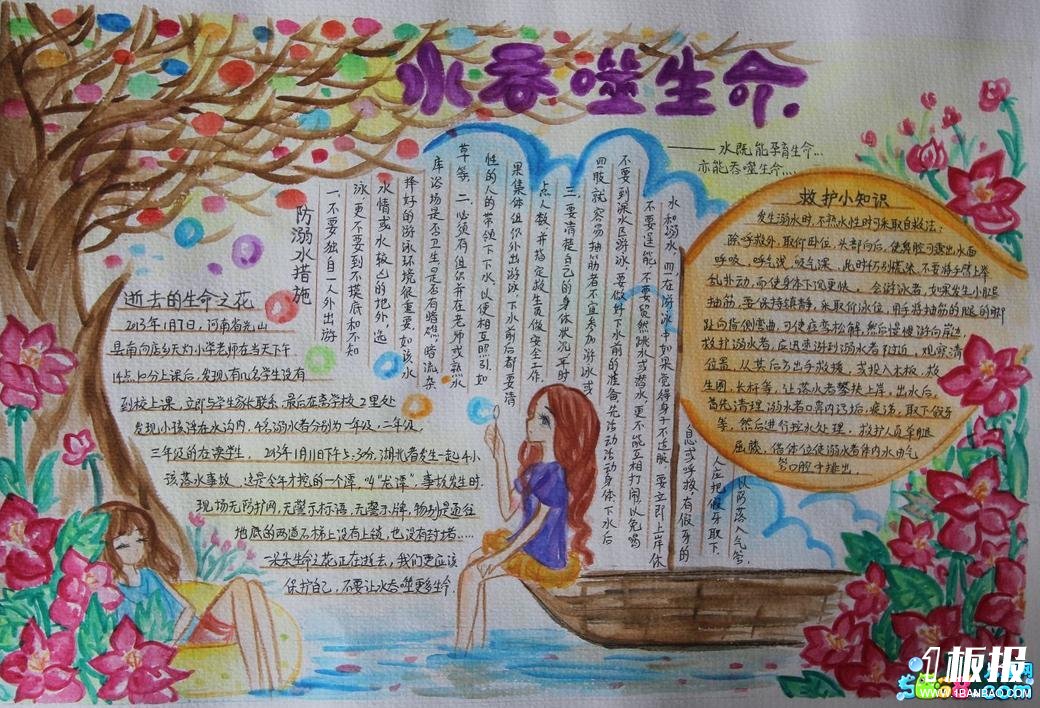 水吞噬生命.
——水既能孕育生命...
亦能吞噬生命....
防溺水措施
一、不要独自一人外出游
泳,更不要到不摸底和不知
水情或水较凶的地外,选
择好的游泳环境很重要.如该水
库浴场是否卫生,是否有暗礁,暗流,杂
草等.二、必须有组织并在老师或熟水
性的人的带领下下水.以便相互照引.如
果集体组织外出游泳,下水前后都要清
点人数,并指定救生员做安全工作.
三、要清楚自己的身体状况,平时
四肢就容易抽筋者不宜参加游泳或
不要到深水区游泳,要做好下水前的准备,先活动活动身体,下水后
不要逞能,不要贸然跳水或潜水,更不能互相打闹,以免喝
水和溺水,四、在游泳中如果觉得身子不适服,要立即上岸休
息或呼救,有假牙的
人应把假牙取下,
以防落入气管.
逝去的生命之花
2013年1月7日,河南省光山
县南向店乡天灯小学老师在当天下午
14点10分上课后,发现有几名学生没有
到校上课,立即与学生家长联系,最后在离学校2里处
发现小孩浮在水沟内,4名溺水者分别为一年级,二年级,
三年级的在读学生. 2013年1月11日下午5.3分,湖北省发生一起4小
孩落水事故, 这是今年才挖的一个潭,叫"龙潭",事故发生时.
现场无防护网,无警示标语,无警示牌,特别是通往
地底的两道石梯上没有上锁,也没有封堵....
一朵朵生命之花正在逝去,我们更应该
保护自己,不要让水吞噬更多生命.
救护小知识
发生溺水时,不熟水性时可采取自救法:
除呼救外,取仰卧位,头部向后,使鼻腔可露出水面
呼吸,呼气浅,吸气深,此时切勿慌张,不要将手臂上举
乱扑动,而使身体下沉更快. 会游泳者,如果发生小腿
抽筋,要保持镇静,采取仰泳位,用手将抽筋的腿的脚
趾向背侧弯曲,可使痉挛松解,然后慢慢游向岸边.
救护溺水者,应迅速游到溺水者附近,观察清
位置,从其后方出手救援,或投入木板,救
生圈,长杆等,让落水者攀扶上岸,出水后,
首先清理溺水者口鼻内污垢,痰涕,取下假牙
等,然后进行控水处理,救护人员单腿
屈膝,俗体位使溺水者体内水由气
管口腔中排出.
1板报
WWW.1BANBAO.COM